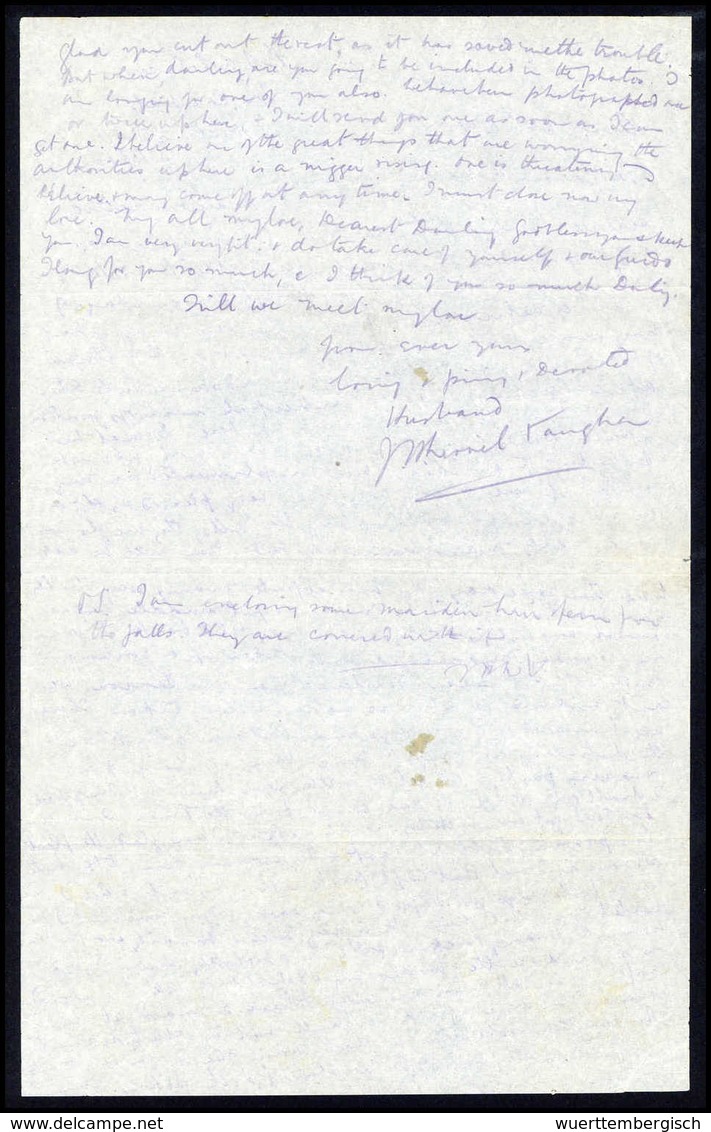 glad you cut out the rest, as it has saved me the trouble.
But when darling, are you going to be included in the photos I
am longing for one of you also. We have been photographed once
or twice up here, & I will send you one as soon as I can
get one. I believe one of the great things that are worrying the
authorities up here is a nigger rising. One is threatening I
believe & may come off at any time. I must close now my
love. My all my love, Dearest Darling God bless you & keep
you. I am very very fit. & do take care of yourself & our
I long for you so much, & I think of you so much Darling.
Till we meet my love
from ever your
loving & pining, & Devoted
Husband
Vaughan
P.S. I am enclosing some maiden hair fern from
the falls. They are covered with it.
wuerttembergisch
delcampe.net